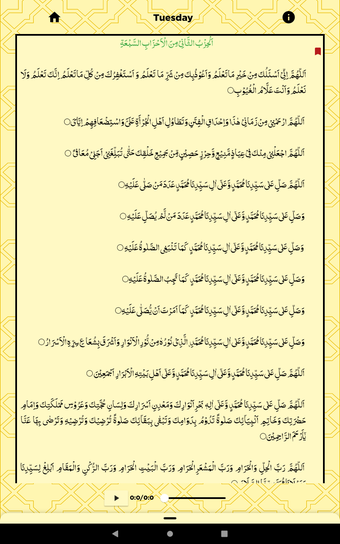 Tuesday
اَلْحِزْبُ الثَّانِيْ مِنَ الْاَحْزَابِ السَّبْعَةِ
اَللّٰهُمَّ اِنِّيْ اَسْئَلُكَ مِنْ خَيْرِ مَا تَعْلَمُ وَ اَعُوْذُبِكَ مِنْ شَرِّ مَا تَعْلَمُ وَ اَسْتَغْفِرُكَ مِنْ كُلِّ مَا تَعْلَمُ اِنَّكَ تَعْلَمُ وَلَا
نَعْلَمُ وَ اَنْتَ عَلَّامُ الْغُيُوْبِ○
اَللّٰهُمَّ ارْحَمْنِيْ مِنْ زَمَانِيْ هٰذَا وَ اِحْدَاقِ الْفِتَنِ وَ تَطَاوُلِ اَهْلِ الْجُرْاَةِ عَلَيَّ وَ اسْتِضْعَافِهِمْ اِيَّايَ○
اَللّٰهُمَّ اجْعَلْنِيْ مِنْكَ فِيْ عِيَاذٍ مَّنِيْعٍ وَّ حِرْزٍ حَصِيْنٍ مِنْ جَمِيْعِ خَلْقِكَ حَتّٰى تُبَلِّغَنِيْ اَجَلِيْ مُعَافًى○
اَللّٰهُمَّ صَلِّ عَلٰى سَيِّدِنَا مُحَمَّدٍ وَّ عَلٰى اٰلِ سَيِّدِنَا مُحَمَّدٍ عَدَدَ مَنْ صَلّٰى عَلَيْهِ○
وَصَلِّ عَلٰى سَيِّدِنَا مُحَمَّدٍ وَّ عَلٰى اٰلِ سَيِّدِنَا مُحَمَّدٍ عَدَدَ مَنْ لَّمْ يُصَلِّ عَلَيْهِ○
وَصَلِّ عَلٰى سَيِّدِنَا مُحَمَّدٍ وَّ عَلٰى اٰلِ سَيِّدِنَا مُحَمَّدٍ كَمَا تَنْبَغِي الصَّلٰوةُ عَلَيْهِ○
وَصَلِّ عَلٰى سَيِّدِنَا مُحَمَّدٍ وَّ عَلٰى اٰلِ سَيِّدِنَا مُحَمَّدٍ كَمَا تَجِبُ الصَّلٰوةُ عَلَيْهِ○
وَصَلِّ عَلٰى سَيِّدِنَا مُحَمَّدٍ وَّ عَلٰى اٰلِ سَيِّدِنَا مُحَمَّدٍ كَمَا اَمَرْتَ اَنْ يُّصَلّٰى عَلَيْهِ○
وَصَلِّ عَلٰى سَيِّدِنَا مُحَمَّدٍ وَّ عَلٰى اٰلِ سَيِّدِنَا مُحَمَّدِ ِالَّذِيْ نُوْرُهٗ مِنْ نُوْرِ الْاَنْوَارِ وَ اَشْرَقَ بِشُعَاعِ سِرِّهِ الْاَسْرَارُ○
اَللّٰهُمَّ صَلِّ عَلٰى سَيِّدِنَا مُحَمَّدٍ وَّ عَلٰى اٰلِ سَيِّدِنَا مُحَمَّدٍ وَّ عَلٰى اَهْلِ بَيْتِهِ الْاَبْرَارِ اَجْمَعِيْنَ○
اَللّٰهُمَّ صَلِّ عَلٰى سَيِّدِنَا مُحَمَّدٍ وَّ عَلٰى اٰلِهٖ بَحْرِ اَنْوَارِكَ وَ مَعْدِنِ اَسْرَارِكَ وَ لِسَانِ حُجَّتِكَ وَ عَرُوْسِ مَمْلَكَتِكَ وَ اِمَامِ
حَضْرَتِكَ وَ خَاتِمِ اَنْبِيَآئِكَ صَلٰوةً تَدُوْمُ بِدَوَامِكَ وَ تَبْقٰى بِبَقَآئِكَ صَلٰوةً تُرْضِيْكَ وَ تُرْضِيْهِ وَ تَرْضٰى بِهَا عَنَّا
يَا اَرْحَمَ الرَّاحِمِيْنَ○
اَللّٰهُمَّ رَبَّ الْحِلِّ وَ الْحَرَامِ وَ رَبَّ الْمَشْعَرِ الْحَرَامِ وَ رَبَّ الْبَيْتِ الْحَرَامِ وَ رَبَّ الرُّكْنِ وَ الْمَقَامِ اَبْلِغْ لِسَيِّدِنَا
0:0/0:0